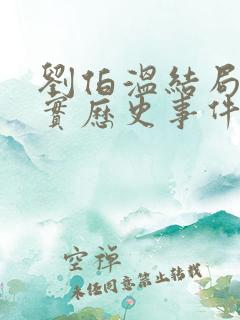 劉伯溫結局
實歷史事件
空禪
未经同意禁止转载